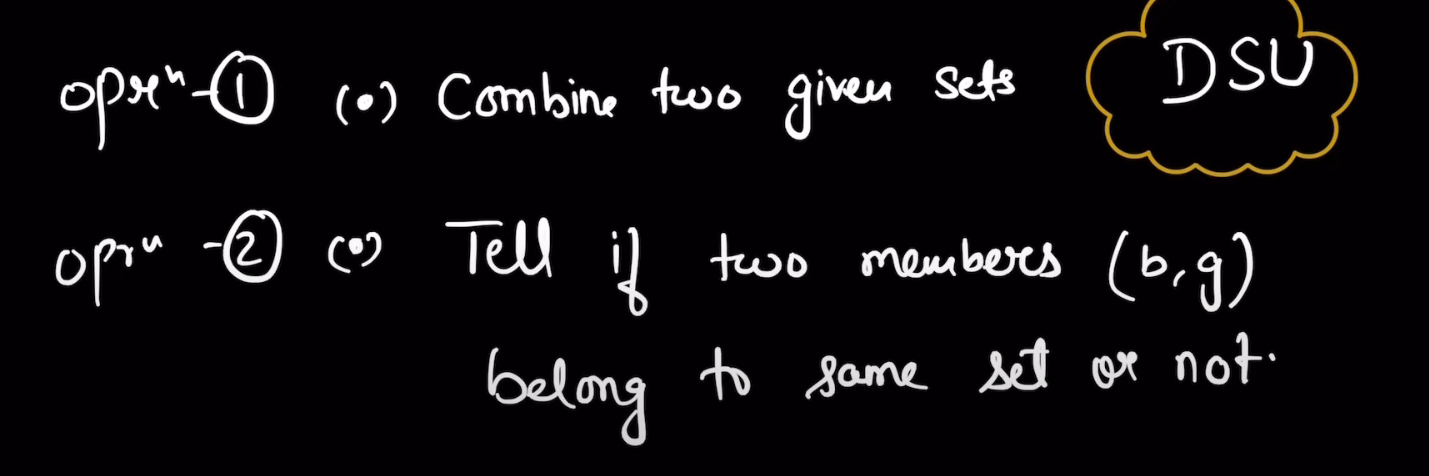 oprⁿ-① (•) Combine two given sets
DSU
oprⁿ -② (•) Tell if two members (b,g)
belong to same set or not.